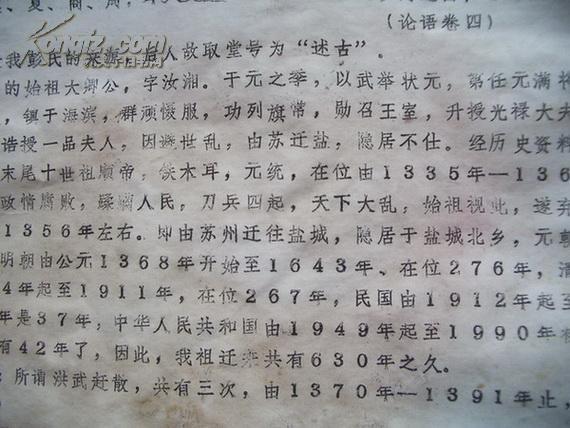 、夏、商、周，
（论语卷四）
我彭氏的来源，后人故取堂号为“述古”。
的始祖大卿公，字汝湘。于元之季，以武举状元，第任元满将
，镇于海滨，群顽慑服，功列旗常，勋召王室，升授光禄大夫
诰授一品夫人，因避世乱，由苏迁盐，隐居不仕。经历史资料
末尾十世祖顺帝，铁木耳，元统，在位由1335年—136
政情腐败，人民，刀兵四起，天下大乱，始祖视此，遂弃
1356年左右。即由苏州迁往盐城，隐居于盐城北乡，元朝
明朝由公元1368年开始至1643年、在位276年，清
4年起至1911年，在位267年，民国由1912年起至
年是37年，中华人民共和国由1949年起至1990年
有42年了，因此，我祖迁来共有630年之久。
：所谓洪武赶散，共有三次，由1370年—1391年止，